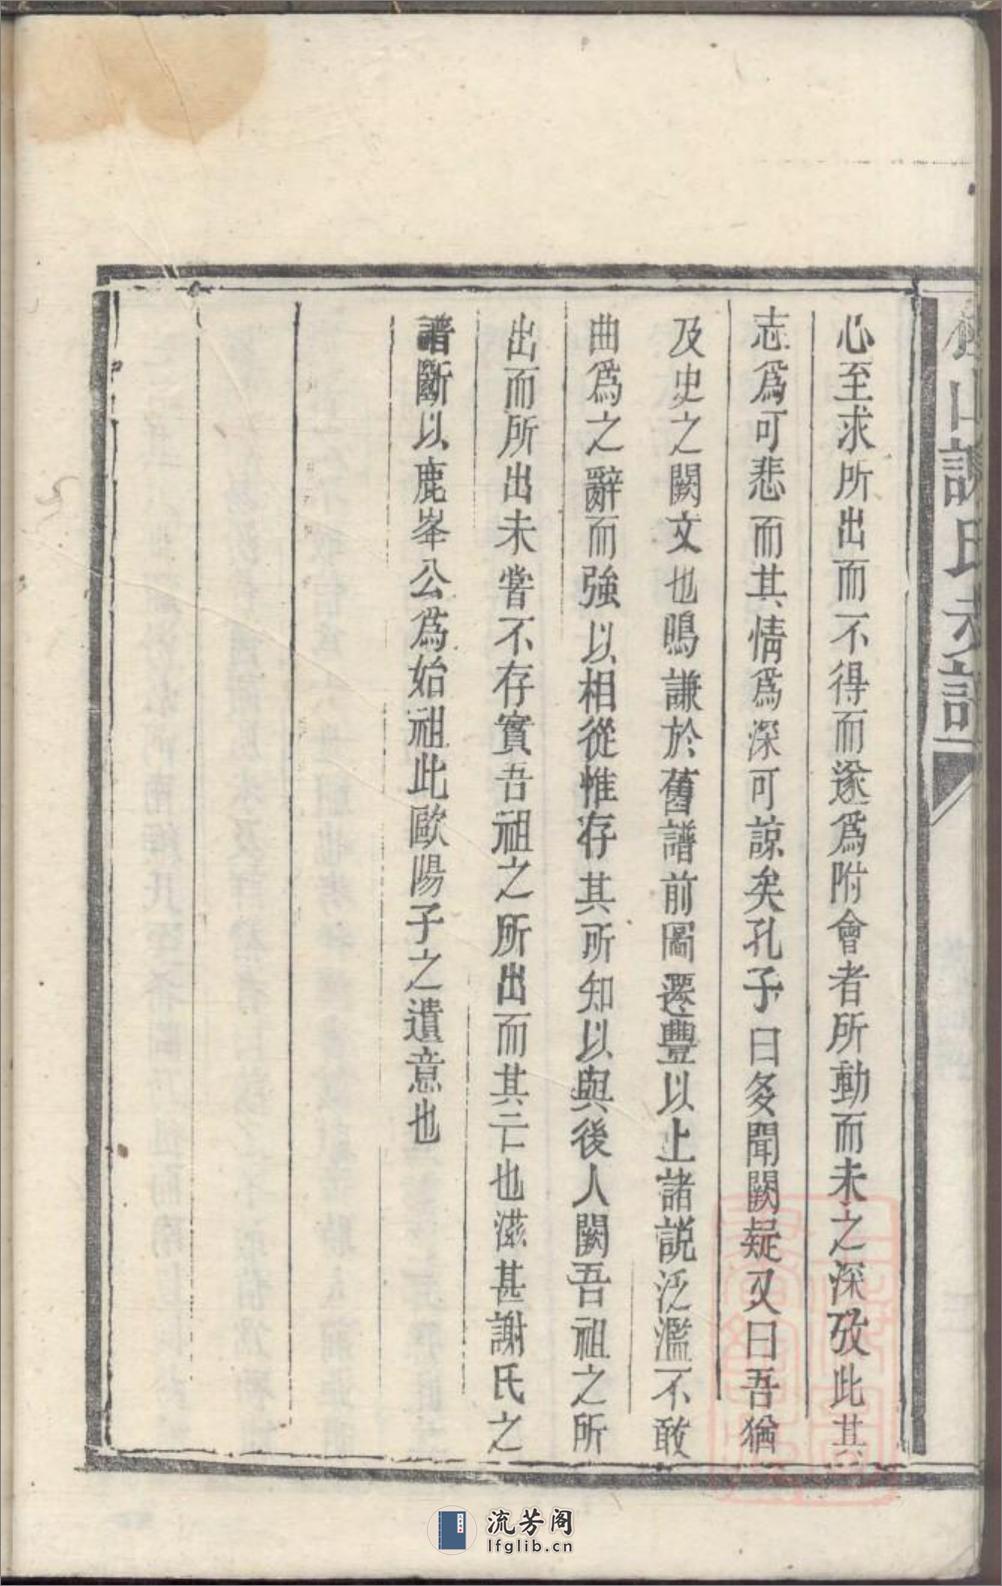 心至求所出而不得而遂爲附會者所動而未之深攷此其
志爲可悲而其情爲深可諒矣孔子曰多聞闕疑又曰吾猶
及史之闕文也鳴謙於舊譜前圖遷豐以上諸説泛濫不敢
曲爲之辭而強以相從惟存其所知以與後人闕吾祖之所
出而所出未嘗不存實吾祖之所出而其亡也滋甚謝氏之
譜斷以鹿峯公爲始祖此歐陽子之遺意也
山謝氏支譜
流芳阁
lfglib.cn